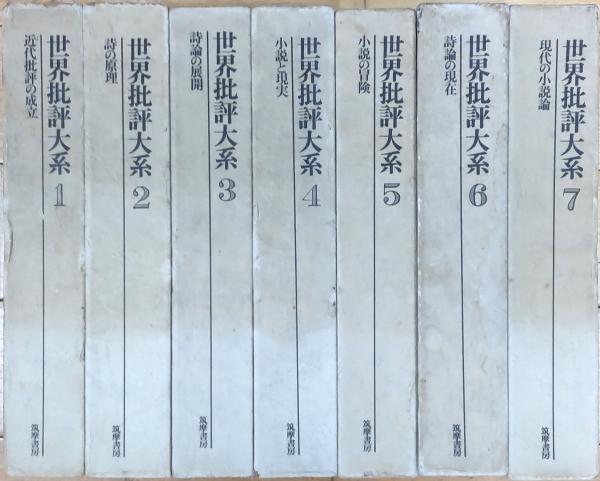 世界批評大系 1
近代批評の成立
筑摩書房
世界批評大系 2
詩の原理
筑摩書房
世界批評大系 3
詩論の展開
筑摩書房
世界批評大系 4
小説と現実
筑摩書房
世界批評大系 5
小説の冒険
筑摩書房
世界批評大系 6
詩論の現在
筑摩書房
世界批評大系 7
現代の小説論
筑摩書房